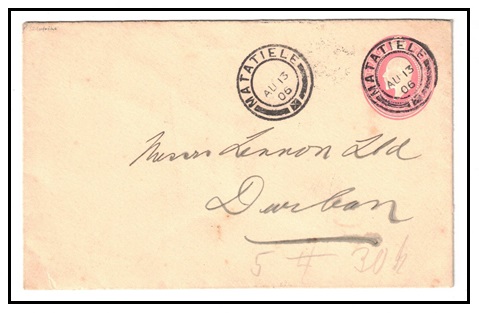 MATATIELE
AU 13
06
MATATIELE
AU 13
06
Messrs Lennon Ltd
Durban
5 # 30